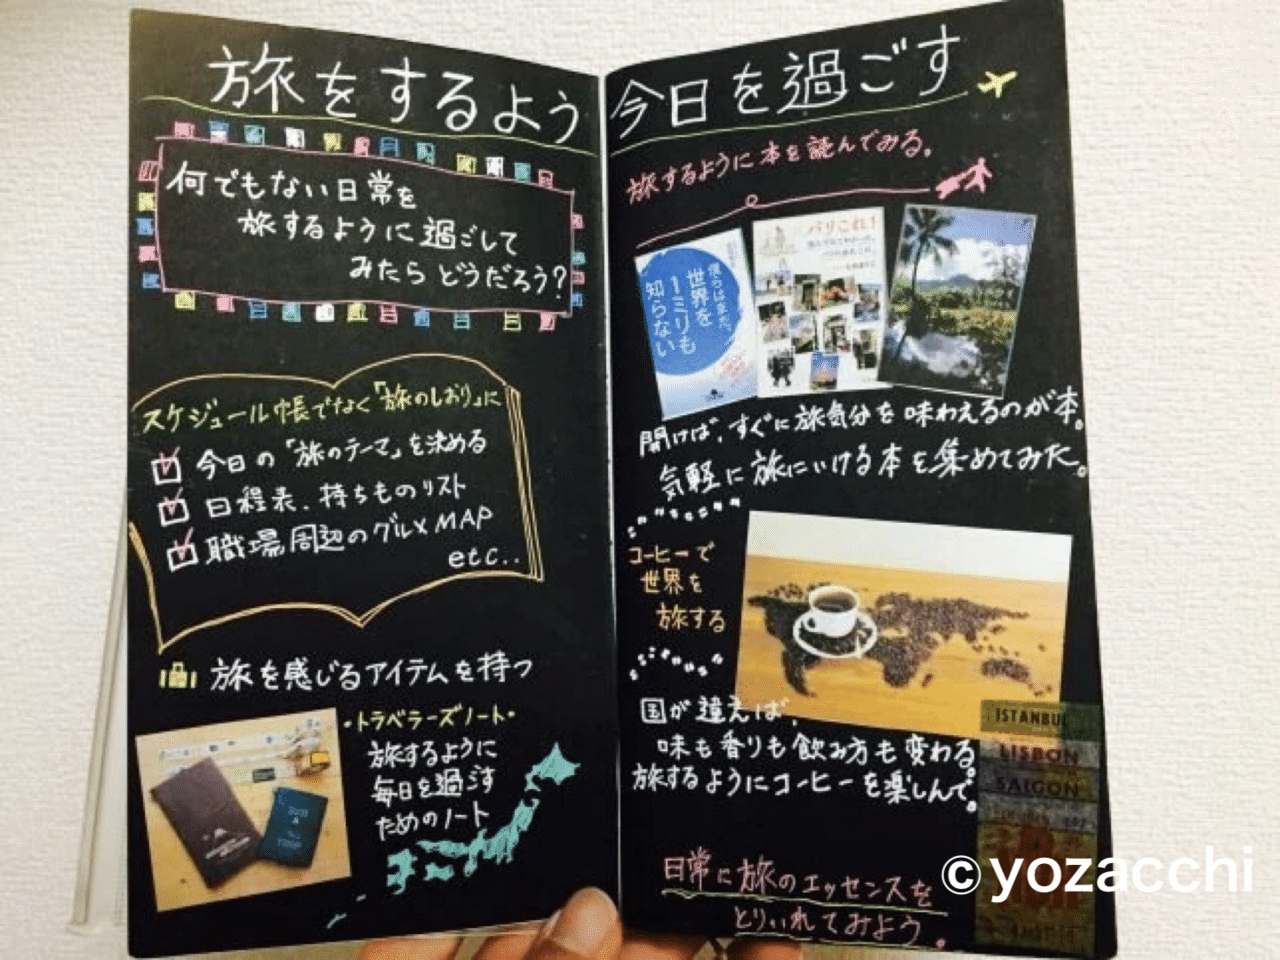 旅をするよう
何でもない日常を
旅するように過ごして
みたら どうだろう?
スケジュール帳でなく「旅のしおり」に
今日の「旅のテーマ」を決める
日程表、持ちものリスト
職場周辺のグルメMAP
etc..
旅を感じるアイテムを持つ
・トラベラーズノート・
旅するように
毎日を過ごす
ためのノート
今日を過ごす
旅するように本を読んでみる。
僕らはまだ、
世界を
1ミリも
知らない
パリこれ!
開けば、すぐに旅気分を味わえるのが本。
気軽に旅にいける本を集めてみた。
コーヒーで
世界を
旅する
国が違えば、
味も香りも飲み方も変わる。
旅するようにコーヒーを楽しんで。
ISTANBUL
LISBON
SAIGON
日常に旅のエッセンスを
とりいれてみよう。
© yozacchi